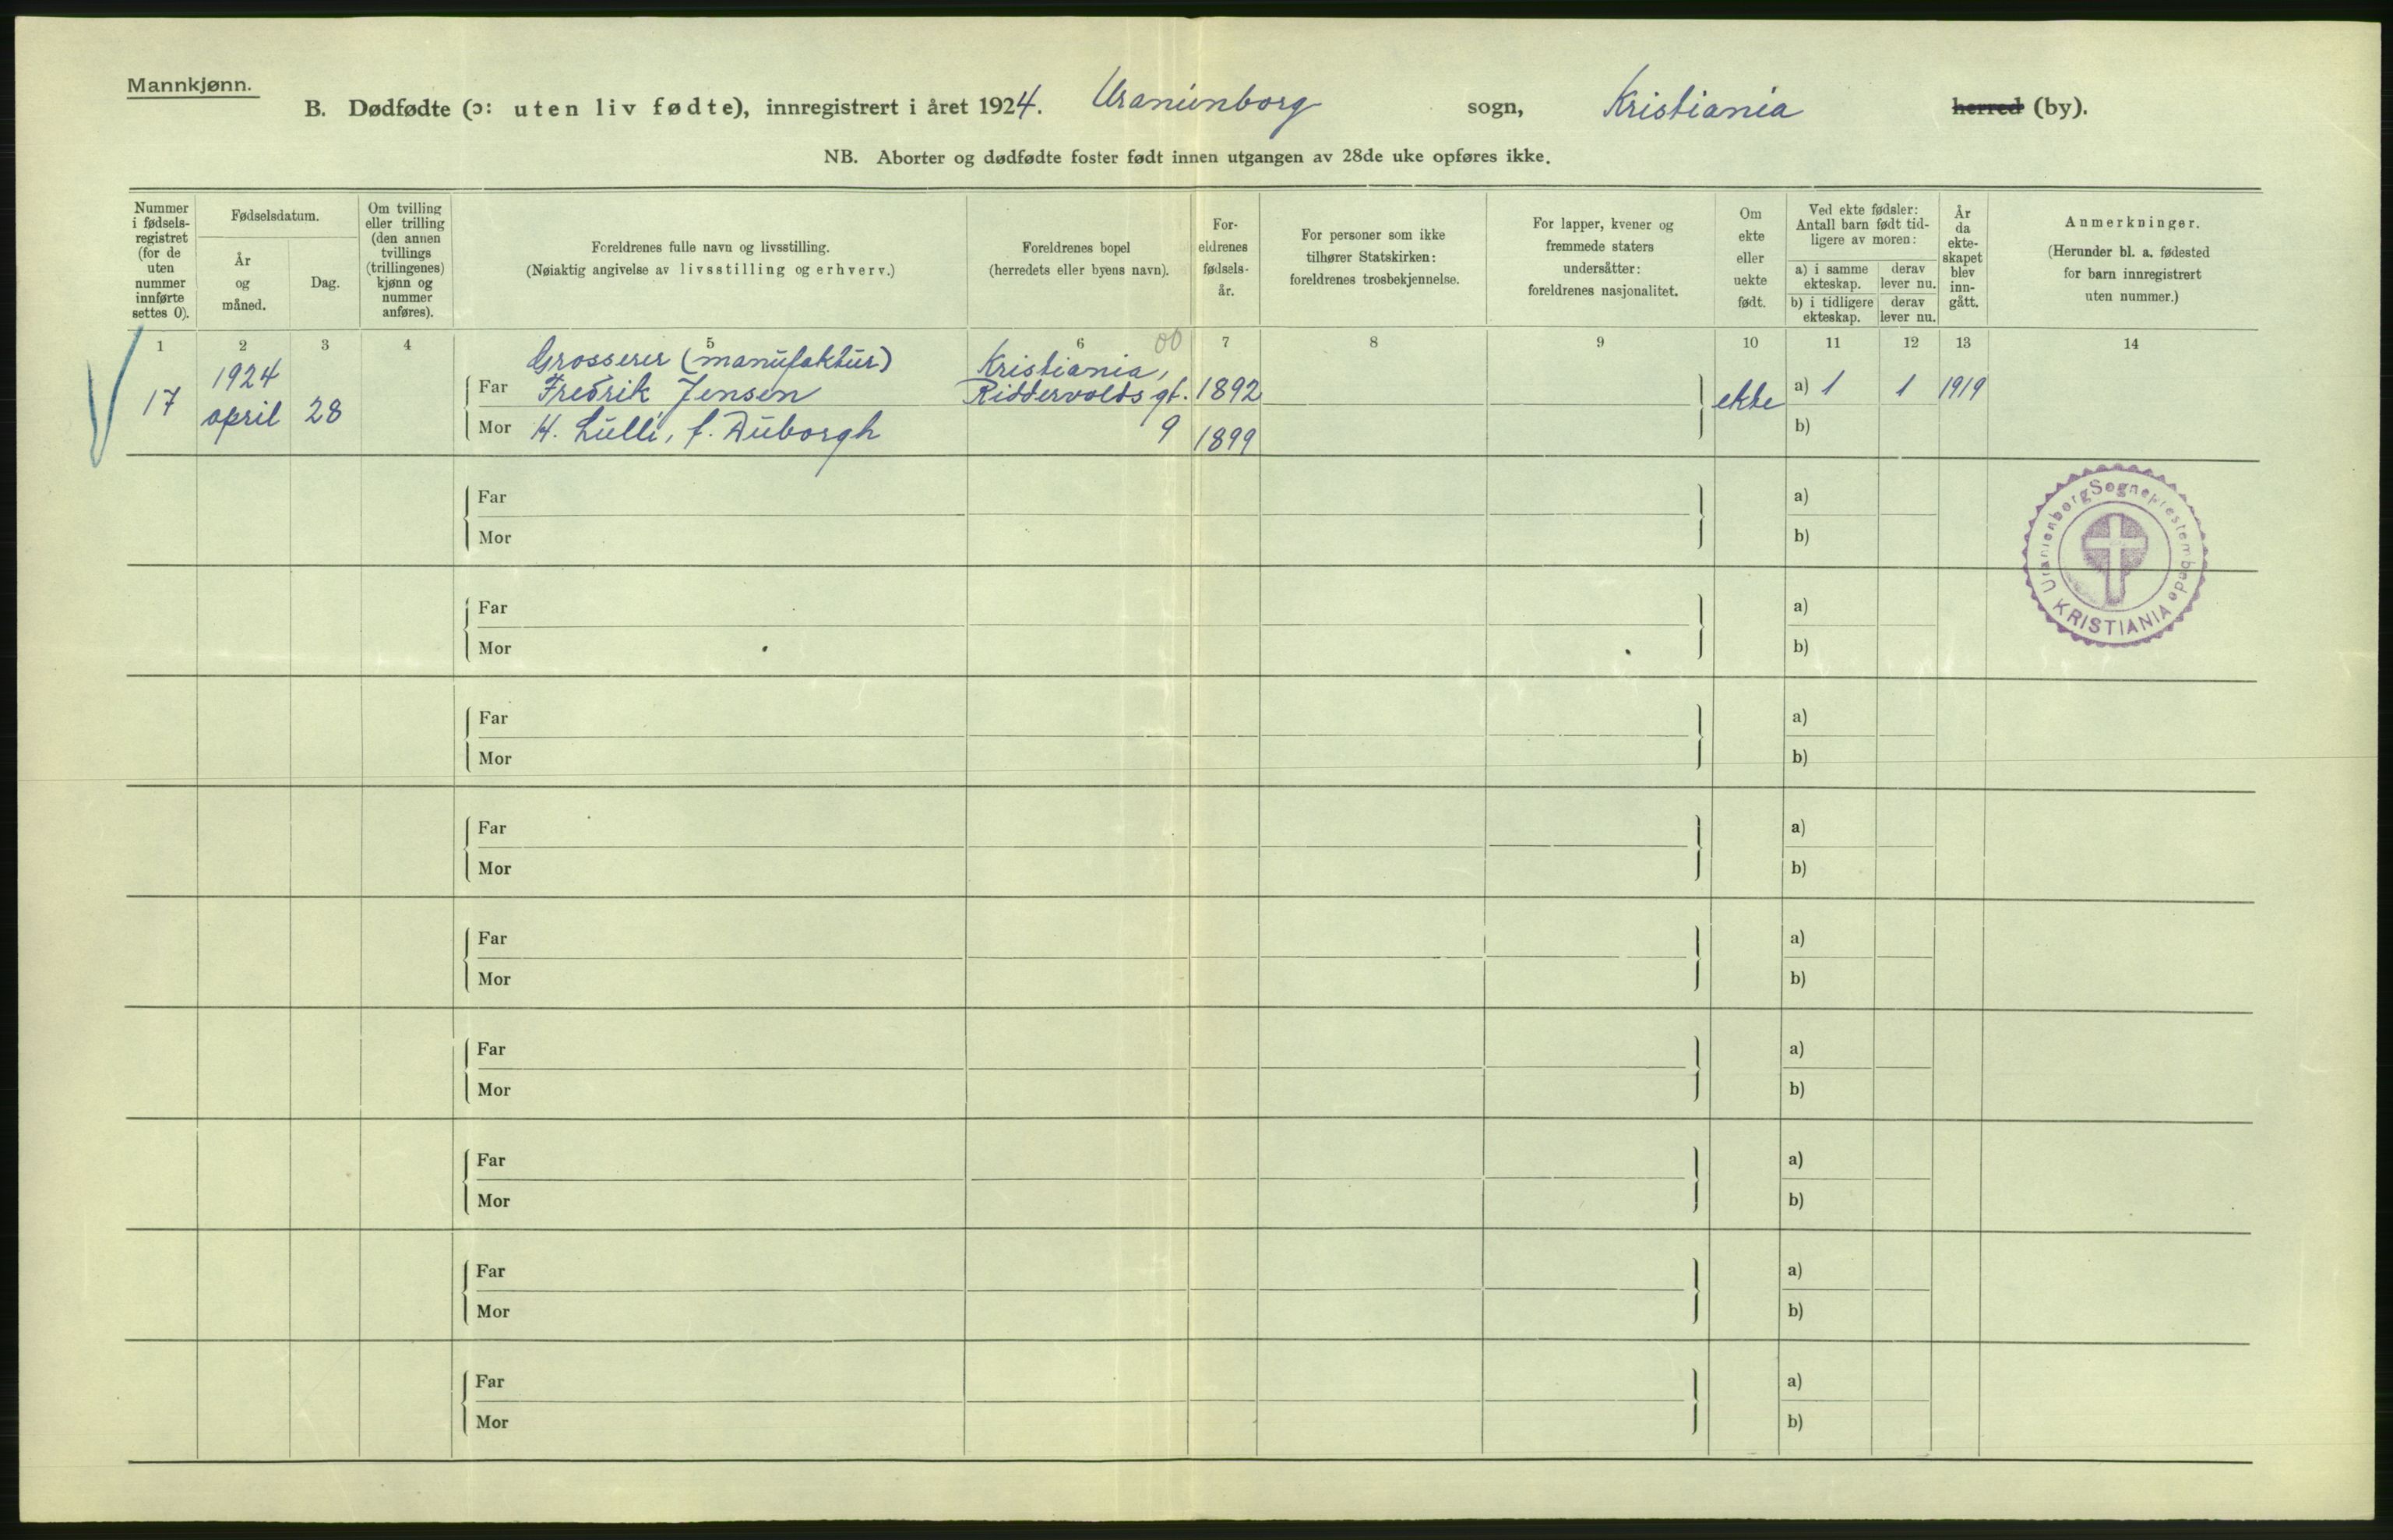 Mannkjønn.
B. Dødfødte (ɔ: uten liv fødte), innregistrert i året 1924. Uranienborg sogn, Kristiania herred (by).
NB. Aborter og dødfødte foster født innen utgangen av 28de uke opføres ikke.
Nummer i fødsels-registret (for de uten nummer innførte settes 0).
Fødselsdatum.
År og måned.
Dag.
Om tvilling eller trilling (den annen tvillings (trillingenes) kjønn og nummer anføres).
Foreldrenes fulle navn og livsstilling.
(Nøiaktig angivelse av livsstilling og erhverv.)
Foreldrenes bopel
(herredets eller byens navn).
For-eldrenes fødsels-år.
For personer som ikke tilhører Statskirken: foreldrenes trosbekjennelse.
For lapper, kvener og fremmede staters undersåtter: foreldrenes nasjonalitet.
Om ekte eller uekte født.
Ved ekte fødsler: Antall barn født tid-ligere av moren:
a) i samme ekteskap.
derav lever nu.
b) i tidligere ekteskap.
derav lever nu.
År da ekte-skapet blev inn-gått.
Anmerkninger.
(Herunder bl. a. fødested for barn innregistrert uten nummer.)
1 2 3 4 5 6 7 8 9 10 11 12 13 14
00
17 1924 april 28
Grosserer (manufaktur)
Far Fredrik Jensen
Mor H. Lulli, f. Auborgh
Kristiania,
Riddervolds gt.
9
1892
1899
ekte
a) 1 1 1919
b)
Far a)
Mor b)
Uranienborg Sogneprestembede
KRISTIANIA
Far a)
Mor b)
Far a)
Mor b)
Far a)
Mor b)
Far a)
Mor b)
Far a)
Mor b)
Far a)
Mor b)
Far a)
Mor b)
Far a)
Mor b)